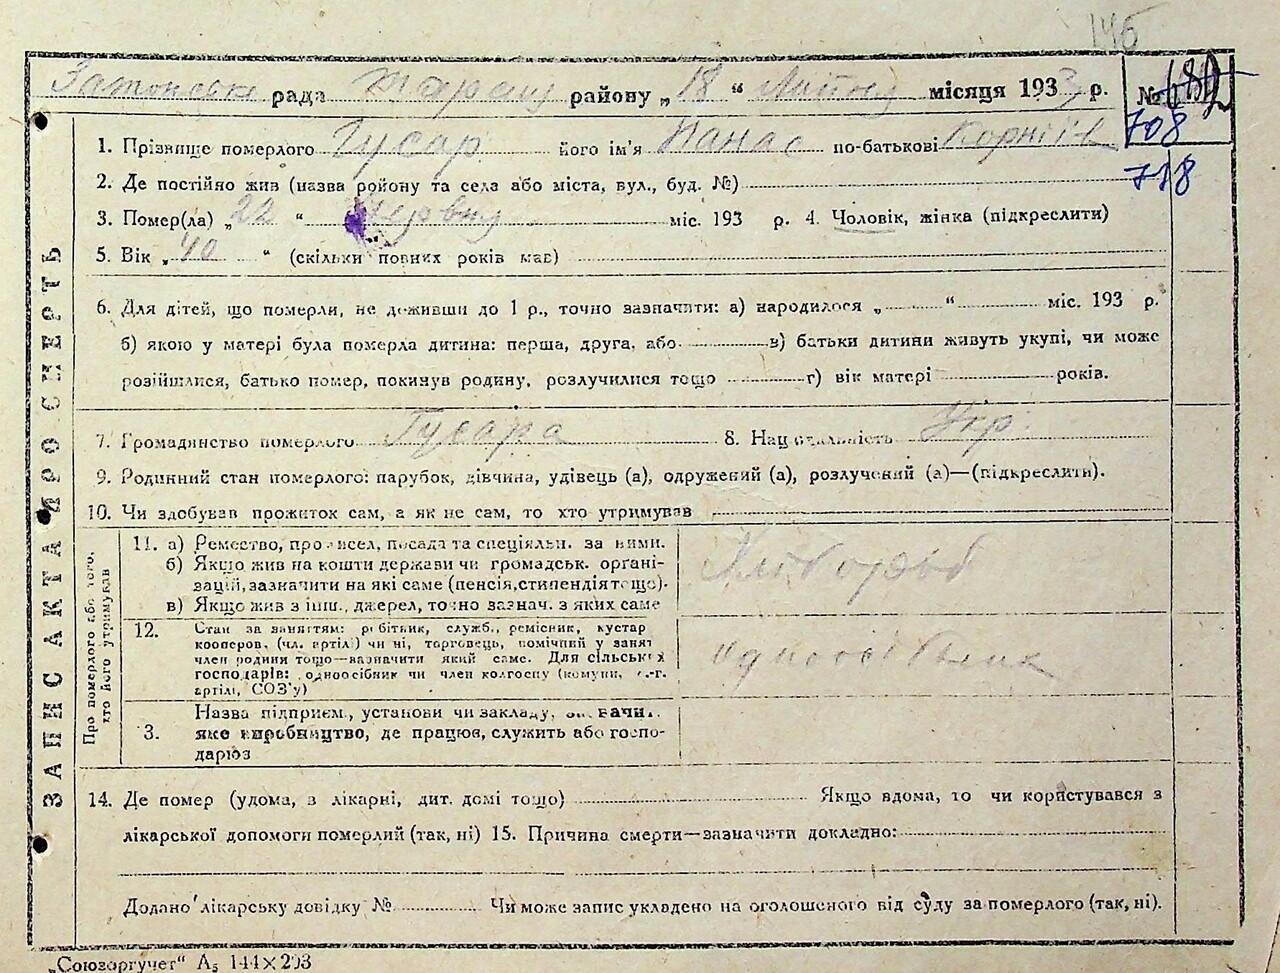 146
рада району „18“ місяця 1933 р. №
1. Прізвище померлого Гусар його ім'я Панас по-батькові Корнієв
708
718
2. Де постійно жив (назва району та села або міста, вул., буд. №)
3. Помер(ла) „22“ Червня міс. 193 р. 4. Чоловік, жінка (підкреслити)
5. Вік „40“ (скільки повних років мав)
6. Для дітей, що померли, не доживши до 1 р., точно зазначити: а) народилося „ “ міс. 193 р.
б) якою у матері була померла дитина: перша, друга, або в) батьки дитини живуть укупі, чи може
розійшлися, батько помер, покинув родину, розлучилися тощо г) вік матері років.
7. Громадянство померлого Гусара 8. Національність Укр.
9. Родинний стан померлого: парубок, дівчина, удівець (а), одружений (а), розлучений (а)—(підкреслити).
10. Чи здобував прожиток сам, а як не сам, то хто утримував
ЗАПИС АКТА ПРО СМЕРТЬ
Про померлого або того,
хто його утримував
11. а) Ремество, промисел, посада та спеціяльн. за ними.
б) Якщо жив на кошти держави чи громадськ. органі-
зацій, зазначити на які саме (пенсія, стипендія тощо).
в) Якщо жив з інш., джерел, точно зазнач. з яких саме
Хлібороб
12. Стан за заняттям: робітник, служб., ремісник, кустар
кооперов. (чл. артілі) чи ні, торговець, помічний у занят
член родини тощо—вазначити який саме. Для сільськ х
господарів: одноосібник чи член колгоспу (комуни, с.-г.
артілі, СОЗ'у)
одноосібник
3. Назва підприєм., установи чи закладу, зазначи..
яке виробництво, де працює, служить або госпо-
дарює
14. Де помер (удома, в лікарні, дит. домі тощо) Якщо вдома, то чи користувався з
лікарської допомоги померлий (так, ні) 15. Причина смерти—зазначити докладно:
Додано лікарську довідку № Чи може запис укладено на оголошеного від суду за померлого (так, ні).
„Союзоргучет“ А5 144×203